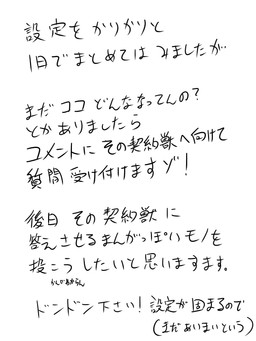 設定をカリカリと
1日でまとめてはみましたが
まだココどんななってんの?
とかありましたら
コメントにその契約獣へ向けて
質問受け付けますゾ!
後日その契約獣に
答えさせるまんがっぽいモノを
投こうしたいと思いますます。
ドンドン下さい!設定が固まるので
(まだあいまいという)